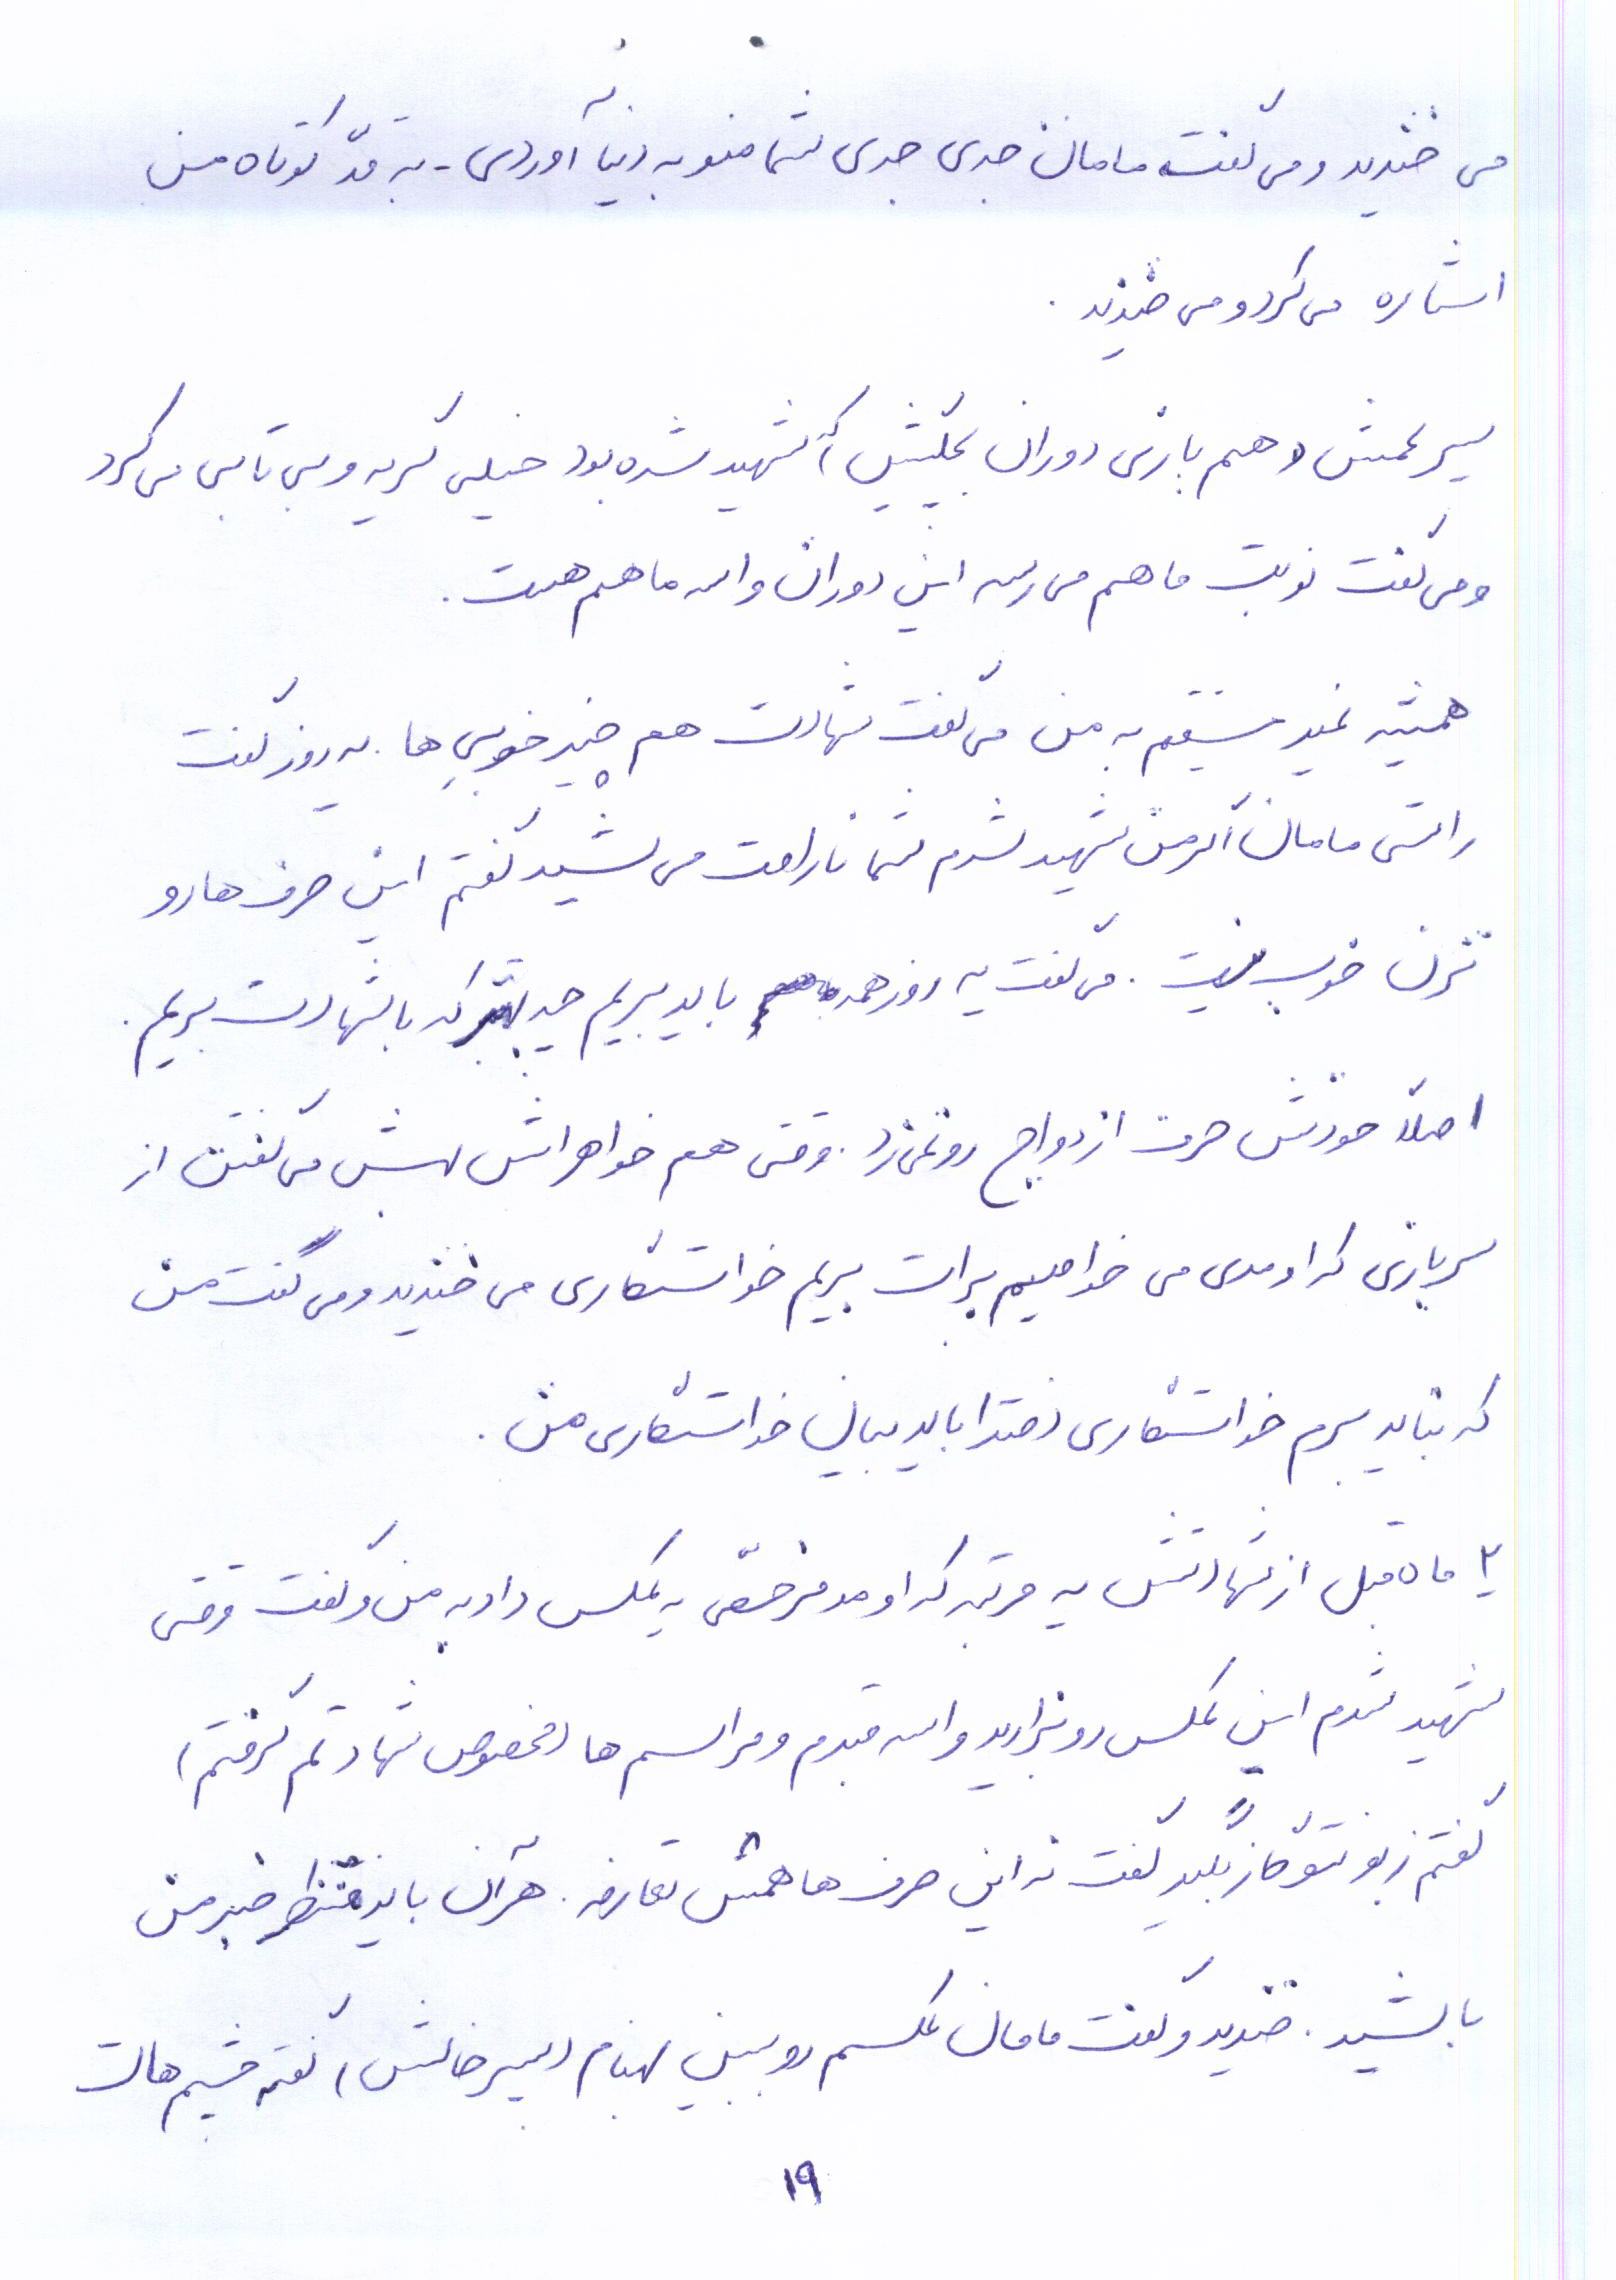 می خندید و می گفت مامان جدی جدی شما منو به دنیا آوردی - به قدّ کوتاه من
اشاره می کرد و می خندید .
پسر عمش (هم بازی دوران بچگیش) شهید شده بود خیلی گریه و بی تابی می کرد
و می گفت نوبت ما هم می رسه این دوران واسه ما هم هست .
همیشه غیر مستقیم به من می گفت شهادت هم چیز خوبیِ ها . یه روز گفت
راستی مامان اگر من شهید شدم شما ناراحت می شید گفتم این حرف ها رو
نزن خوب نیست . می گفت یه روز همه باید بریم چه بهتر که با شهادت بریم .
اصلاً خودش حرف ازدواج رو نمی زد . وقتی هم خواهراش بهش می گفتن از
سربازی که اومدی می خواهیم برات بریم خواستگاری می خندید و می گفت من
که نباید برم خواستگاری دخترا باید بیان خواستگاری من .
۲ ماه قبل از شهادتش یه مرتبه که اومد مرخصی یه عکس داد به من و گفت وقتی
شهید شدم این عکس رو بزارید واسه قبرم و مراسم ها (مخصوص شهادتم گرفتم)
گفتم زبونتو گاز بگیر گفت نه این حرف ها همش تعارفه . هر آن باید منتظر خبر من
باشید . خندید و گفت مامان عکسم رو ببین بهنام (پسر خالش) گفته چشم هات
۱۹